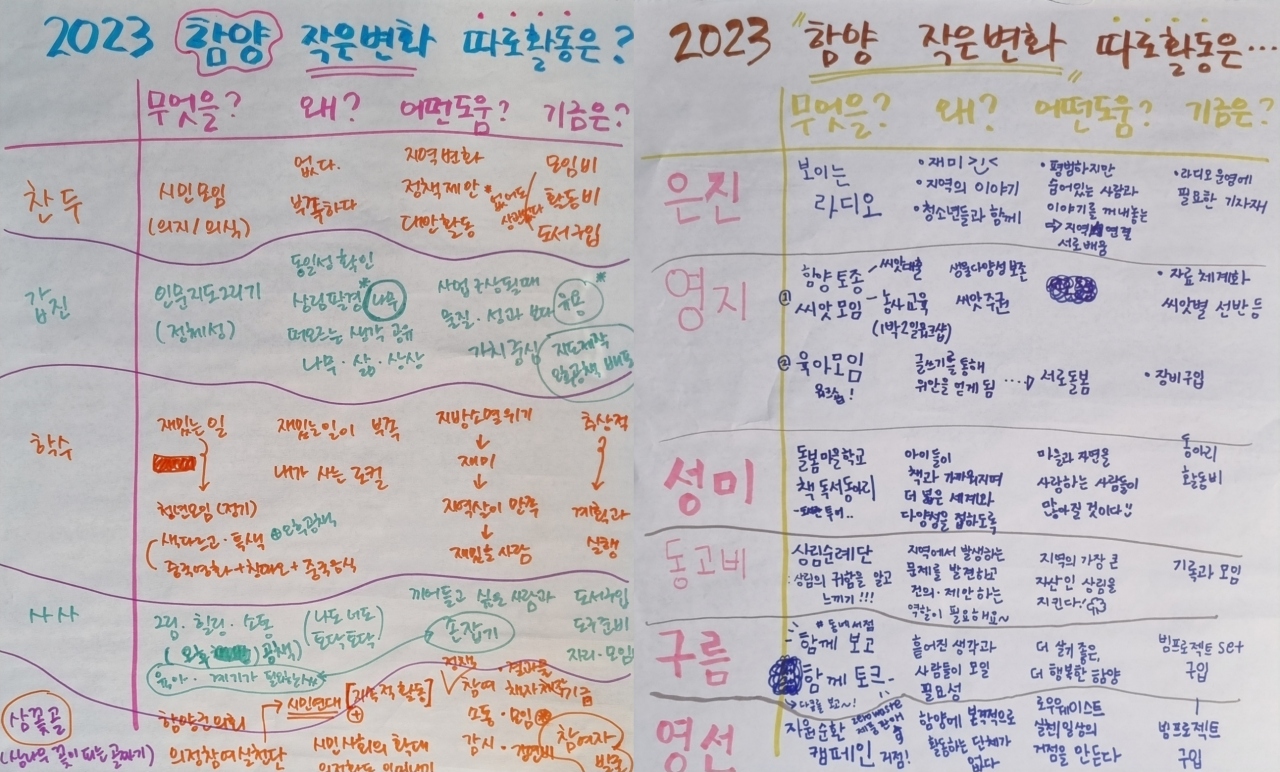 2023 함양 작은변화 따로활동은?
무엇을? 왜? 어떤도움? 기금은?
찬두
시민모임
(의지/의식)
없다.
부족하다
지역변화
정책제안
대안활동
없어도
모임비
활동비
도서구입
갑진
인문지도그리기
(정체성)
동일성 확인
상림팔경 나무
떠오르는 생각 공유
나무·삶·상상
사업구상될때
물질·성과 보다
가치중심
유용
지도제작
오늘공책 배포
학수
재밌는 일
청년모임(정기)
색다르고·특색
⊕오늘공책
중국영화+칭따오+중국음식
재밌는일이 부족
내가 사는 로컬
지방소멸위기
↓
재미
↓
지역살이 만족
↓
재밌는 사람
추상적
계획과
실행
사사
그림·힐링·소통
(나도 너도
토닥토닥)
(오늘 공책)
육아·계기가 필요한
끼어들고 싶은 사람과
손잡기
도서구입
도구준비
자리·모임
삼꽃골
(삼나무 꽃이 피는 골짜기)
함양군의회
의정참여실천단
시민연대 [지속적활동]
⊕
시민사회의 확대
정책
참여
소통·모임
감시·
·결과물
책자제작
기금
참여자
발굴
2023 "함양 작은변화" 따로활동은...
무엇을? 왜? 어떤도움? 기금은?
은진
보이는
라디오
·재미진
·지역의 이야기
·청소년들과 함께
·평범하지만
숨어있는 사람과
이야기를 꺼내놓는
⇒지역 연결
서로배움
·라디오운영에
필요한 기자재
영지
① 함양 토종
씨앗모임
씨앗대출
농사교육
(1박2일워크샵)
생물다양성 보존
씨앗주권
·자료 체계화
씨앗별 선반 등
② 육아모임
글쓰기를 통해
위안을 얻게 됨
서로돌봄
·장비구입
성미
돌봄마을학교
책 독서동아리
아이들이
책과 가까워지며
더 넓은 세계와
다양성을 접하도록
마을과 자연을
사랑하는 사람들이
많아질 것이다!!
동아리
활동비
동고비
상림순례단
:상림의 귀함을 알고
느끼기!!!
지역에서 발생하는
문제를 발견하고
건의·제안하는
역할이 필요해요~
지역의 가장 큰
자산인 상림을
지킨다!
기록과 모임
구름
#동네서점
함께 보고
함께 토크
→다음을 보고~!
흩어진 생각과
사람들이 모일
필요성
더 살기 좋은,
더 행복한 함양
빔프로젝트 set
구입
영선
자원순환
캠페인
zerowaste
제품장애
거점!
함양에 본격적으로
활동하는 단체가
없다
로우웨이스트
실천일상의
거점을 만든다
빔프로젝트
구입